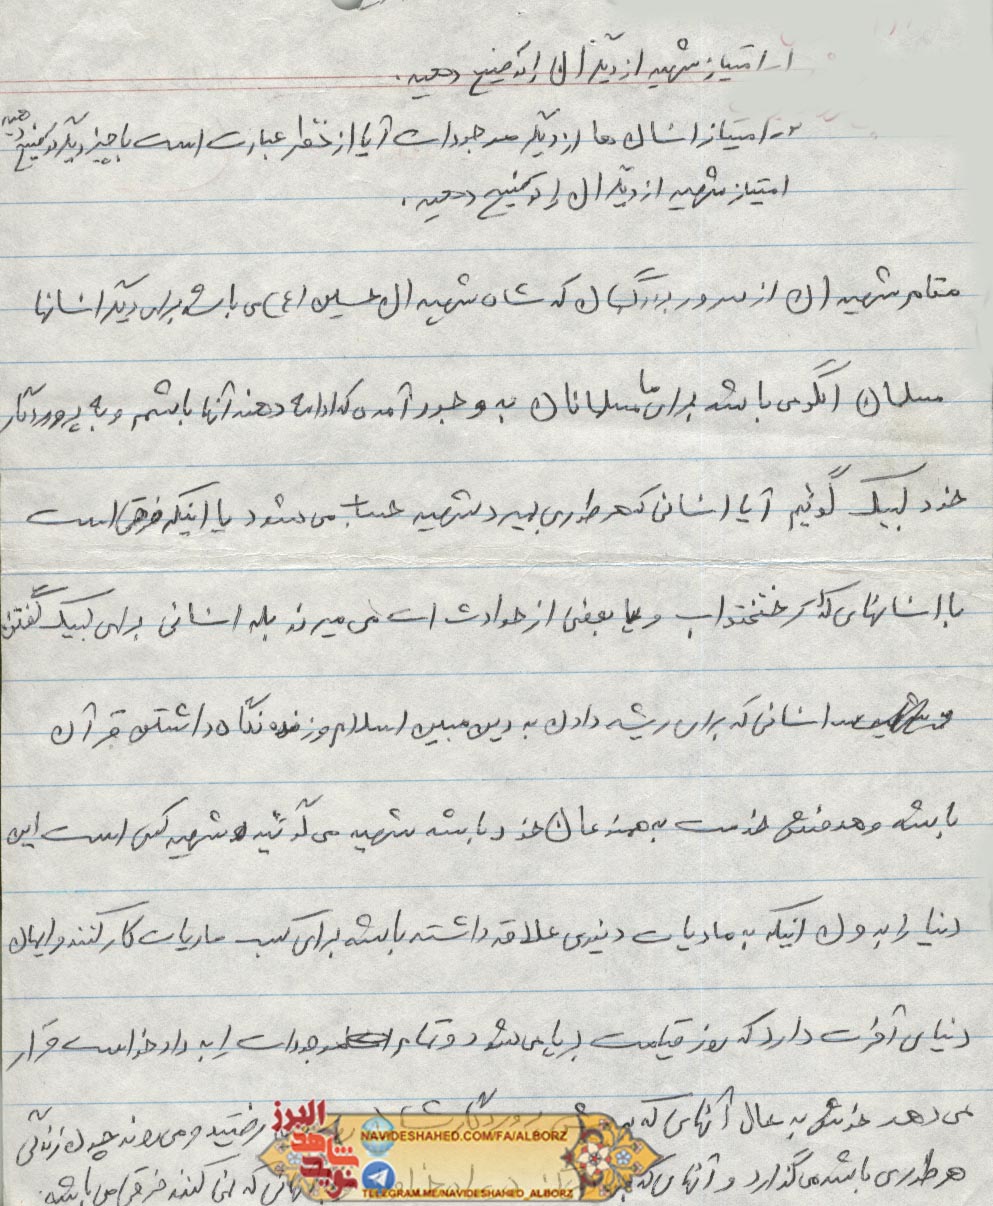 ۱- امتیاز شهید از دیگران را توضیح دهید.
۲- امتیاز انسان ها از دیگر موجودات آیا از نظر عبارت است یا چیز دیگر توضیح دهید
امتیاز شهید از دیگران را توضیح دهید.
مقام شهیدان از سرور بزرگسان که شاه شهیدان حسین (ع) می باشد برای دیگر انسانها
مسلمان الگو می باشد برای ما مسلمانان به وجود آمده که ادامه دهنده آنها باشیم و به پروردگار
خود لبیک گوئیم آیا انسانی که هر طوری بمیرد شهید حساب می شود یا اینکه فرقی است
با انسانهای که در رختخواب و یا بعضی از حوادث است می میرند بله انسانی برای لبیک گفتن
انسانی که برای ریشه دادن به دین مبین اسلام و زنده نگاه داشتن قرآن
باشد و هدفش خدمت به همنوعان خود باشد شهید می گوئید شهید کسی است این
دنیا را بدون اینکه به مادیات دنیوی علاقه داشته باشد برای کسب مادیات کار کنند و ایمان
دنیای آخرت دارد که روز قیامت برپا می شود و تمام موجودات را به دادخواست قرار
می دهد خوش به حال آنهای که به رفتند و می روند چون زندگی
هر طوری باشد می گذارد و آنهای که که نمی کنند فرقی می باشد.
البرز
نوید شاهد
NAVIDESHAHED.COM/FA/ALBORZ
TELEGRAM.ME/NAVIDESHAHED_ALBORZ